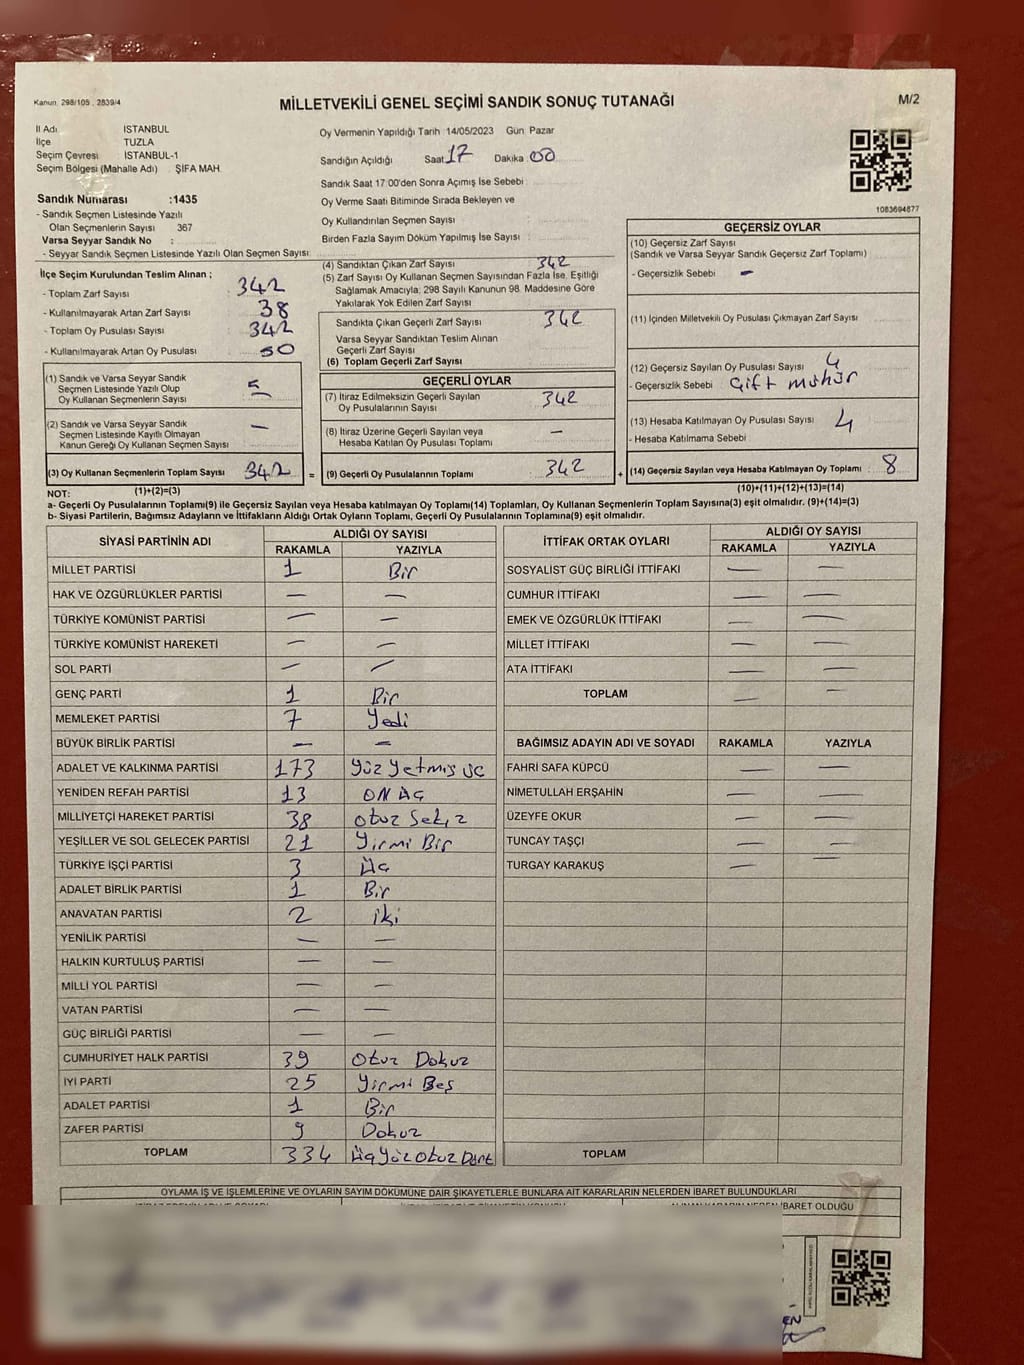 Kanun 298/105 , 2839/4
MİLLETVEKİLİ GENEL SEÇİMİ SANDIK SONUÇ TUTANAĞI
M/2
İl Adı İSTANBUL
İlçe TUZLA
Seçim Çevresi İSTANBUL-1
Seçim Bölgesi (Mahalle Adı) : ŞİFA MAH.
Oy Vermenin Yapıldığı Tarih 14/05/2023 Gün Pazar
Sandığın Açıldığı Saat 17 Dakika 00
Sandık Saat 17:00'den Sonra Açımış İse Sebebi :
Oy Verme Saati Bitiminde Sırada Bekleyen ve
Oy Kullandırılan Seçmen Sayısı :
Birden Fazla Sayım Döküm Yapılmış İse Sayısı :
1083694877
Sandık Numarası :1435
- Sandık Seçmen Listesinde Yazılı
Olan Seçmenlerin Sayısı 367
Varsa Seyyar Sandık No :
- Seyyar Sandık Seçmen Listesinde Yazılı Olan Seçmen Sayısı:
İlçe Seçim Kurulundan Teslim Alınan ;
- Toplam Zarf Sayısı : 342
- Kullanılmayarak Artan Zarf Sayısı : 38
- Toplam Oy Pusulası Sayısı : 342
- Kullanılmayarak Artan Oy Pusulası : 50
(1) Sandık ve Varsa Seyyar Sandık
Seçmen Listesinde Yazılı Olup
Oy Kullanan Seçmenlerin Sayısı 5
(2) Sandık ve Varsa Seyyar Sandık
Seçmen Listesinde Kayıtlı Olmayan
Kanun Gereği Oy Kullanan Seçmen Sayısı —
(3) Oy Kullanan Seçmenlerin Toplam Sayısı 342 =
(1)+(2)=(3)
(4) Sandıktan Çıkan Zarf Sayısı 342
(5) Zarf Sayısı Oy Kullanan Seçmen Sayısından Fazla İse, Eşitliği
Sağlamak Amacıyla; 298 Sayılı Kanunun 98. Maddesine Göre
Yakılarak Yok Edilen Zarf Sayısı
Sandıkta Çıkan Geçerli Zarf Sayısı 342
Varsa Seyyar Sandıktan Teslim Alınan
Geçerli Zarf Sayısı
(6) Toplam Geçerli Zarf Sayısı
GEÇERLİ OYLAR
(7) İtiraz Edilmeksizin Geçerli Sayılan
Oy Pusulalarının Sayısı 342
(8) İtiraz Üzerine Geçerli Sayılan veya
Hesaba Katılan Oy Pusulası Toplamı —
(9) Geçerli Oy Pusulalarının Toplamı 342 +
GEÇERSİZ OYLAR
(10) Geçersiz Zarf Sayısı
(Sandık ve Varsa Seyyar Sandık Geçersiz Zarf Toplamı)
- Geçersizlik Sebebi : —
(11) İçinden Milletvekili Oy Pusulası Çıkmayan Zarf Sayısı
(12) Geçersiz Sayılan Oy Pusulası Sayısı : 4
- Geçersizlik Sebebi : Çift mühür
(13) Hesaba Katılmayan Oy Pusulası Sayısı : 4
- Hesaba Katılmama Sebebi
(14) Geçersiz Sayılan veya Hesaba Katılmayan Oy Toplamı : 8
(10)+(11)+(12)+(13)=(14)
NOT:
a- Geçerli Oy Pusulalarının Toplamı(9) ile Geçersiz Sayılan veya Hesaba katılmayan Oy Toplamı(14) Toplamları, Oy Kullanan Seçmenlerin Toplam Sayısına(3) eşit olmalıdır. (9)+(14)=(3)
b- Siyasi Partilerin, Bağımsız Adayların ve İttifakların Aldığı Ortak Oyların Toplamı, Geçerli Oy Pusulalarının Toplamına(9) eşit olmalıdır.
SİYASİ PARTİNİN ADI ALDIĞI OY SAYISI
RAKAMLA YAZIYLA
MİLLET PARTİSİ 1 Bir
HAK VE ÖZGÜRLÜKLER PARTİSİ — —
TÜRKİYE KOMÜNİST PARTİSİ — —
TÜRKİYE KOMÜNİST HAREKETİ — —
SOL PARTİ — —
GENÇ PARTİ 1 Bir
MEMLEKET PARTİSİ 7 Yedi
BÜYÜK BİRLİK PARTİSİ — —
ADALET VE KALKINMA PARTİSİ 173 Yüz Yetmiş üc
YENİDEN REFAH PARTİSİ 13 ON Üç
MİLLİYETÇİ HAREKET PARTİSİ 38 Otuz Sekiz
YEŞİLLER VE SOL GELECEK PARTİSİ 21 Yirmi Bir
TÜRKİYE İŞÇİ PARTİSİ 3 Üç
ADALET BİRLİK PARTİSİ 1 Bir
ANAVATAN PARTİSİ 2 iki
YENİLİK PARTİSİ — —
HALKIN KURTULUŞ PARTİSİ — —
MİLLİ YOL PARTİSİ — —
VATAN PARTİSİ — —
GÜÇ BİRLİĞİ PARTİSİ — —
CUMHURİYET HALK PARTİSİ 39 Otuz Dokuz
İYİ PARTİ 25 Yirmi Beş
ADALET PARTİSİ 1 Bir
ZAFER PARTİSİ 9 Dokuz
TOPLAM 334 ÜçYüzOtuzDört
İTTİFAK ORTAK OYLARI ALDIĞI OY SAYISI
RAKAMLA YAZIYLA
SOSYALİST GÜÇ BİRLİĞİ İTTİFAKI — —
CUMHUR İTTİFAKI — —
EMEK VE ÖZGÜRLÜK İTTİFAKI — —
MİLLET İTTİFAKI — —
ATA İTTİFAKI — —
TOPLAM — —
BAĞIMSIZ ADAYIN ADI VE SOYADI RAKAMLA YAZIYLA
FAHRİ SAFA KÜPCÜ — —
NİMETULLAH ERŞAHİN — —
ÜZEYFE OKUR — —
TUNCAY TAŞÇI — —
TURGAY KARAKUŞ — —
TOPLAM
OYLAMA İŞ VE İŞLEMLERİNE VE OYLARIN SAYIM DÖKÜMÜNE DAİR ŞİKAYETLERLE BUNLARA AİT KARARLARIN NELERDEN İBARET BULUNDUKLARI
İBARET OLDUĞU